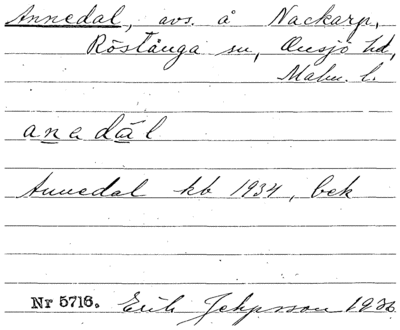 Annedal, avs. å Nackarp,
Röstånga sn, Onsjö hd,
Malm. l.
anedāl
Annedal kb 1934, bek
Nr 5716. Erik Jeppsson 1936